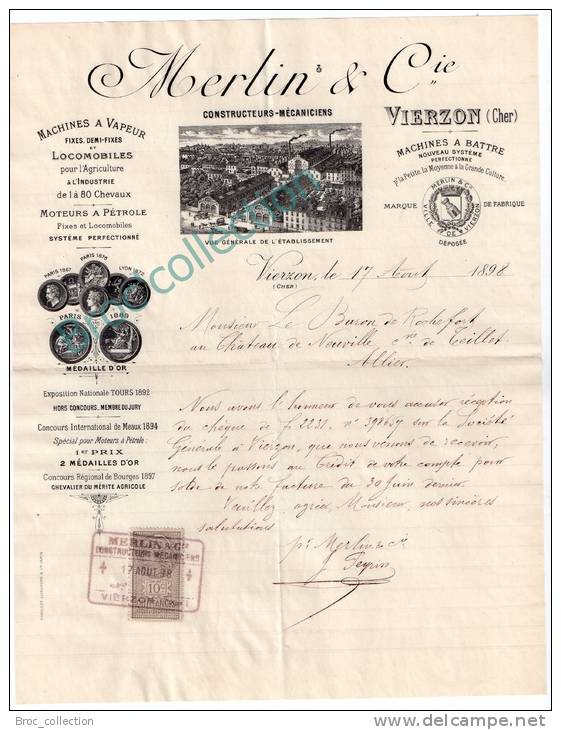 Merlin & Cie
CONSTRUCTEURS-MÉCANICIENS
VIERZON (Cher)
MACHINES A VAPEUR
FIXES, DEMI-FIXES
ET
LOCOMOBILES
pour l'Agriculture
& L'INDUSTRIE
de 1 à 80 Chevaux
MOTEURS A PÉTROLE
Fixes et Locomobiles
SYSTÈME PERFECTIONNÉ
VUE GÉNÉRALE DE L'ÉTABLISSEMENT
MACHINES A BATTRE
NOUVEAU SYSTÈME
PERFECTIONNÉ
Pr la Petite, la Moyenne & la Grande Culture.
MARQUE DE FABRIQUE
MERLIN & Cie
VILLE DE VIERZON
DÉPOSÉE
Vierzon, le 17 Août 1898
(CHER)
PARIS 1867
PARIS 1878
LYON 1872
PARIS 1889
MÉDAILLE D'OR
Exposition Nationale TOURS 1892
HORS CONCOURS, MEMBRE DU JURY
Concours International de Meaux 1894
Spécial pour Moteurs à Pétrole:
1er PRIX
2 MÉDAILLES D'OR
Concours Régional de Bourges 1897
CHEVALIER DU MÉRITE AGRICOLE
Monsieur Le Baron de Rochefort
au Château de Neuville cne de Teillet
Allier.
Nous avons l'honneur de vous accuser réception
du chèque de f 2231. n° 398657 sur la Société
Générale à Vierzon, que nous venons de recevoir,
nous le passons au Crédit de votre compte pour
solde de notre facture du 30 Juin dernier.
Veuillez agréer, Monsieur, nos sincères
salutations
pr Merlin & Cie
MERLIN & Cie
CONSTRUCTEURS MÉCANICIENS
17 AOUT 98
VIERZON
10c
Broc_collection
www.delcampe.net